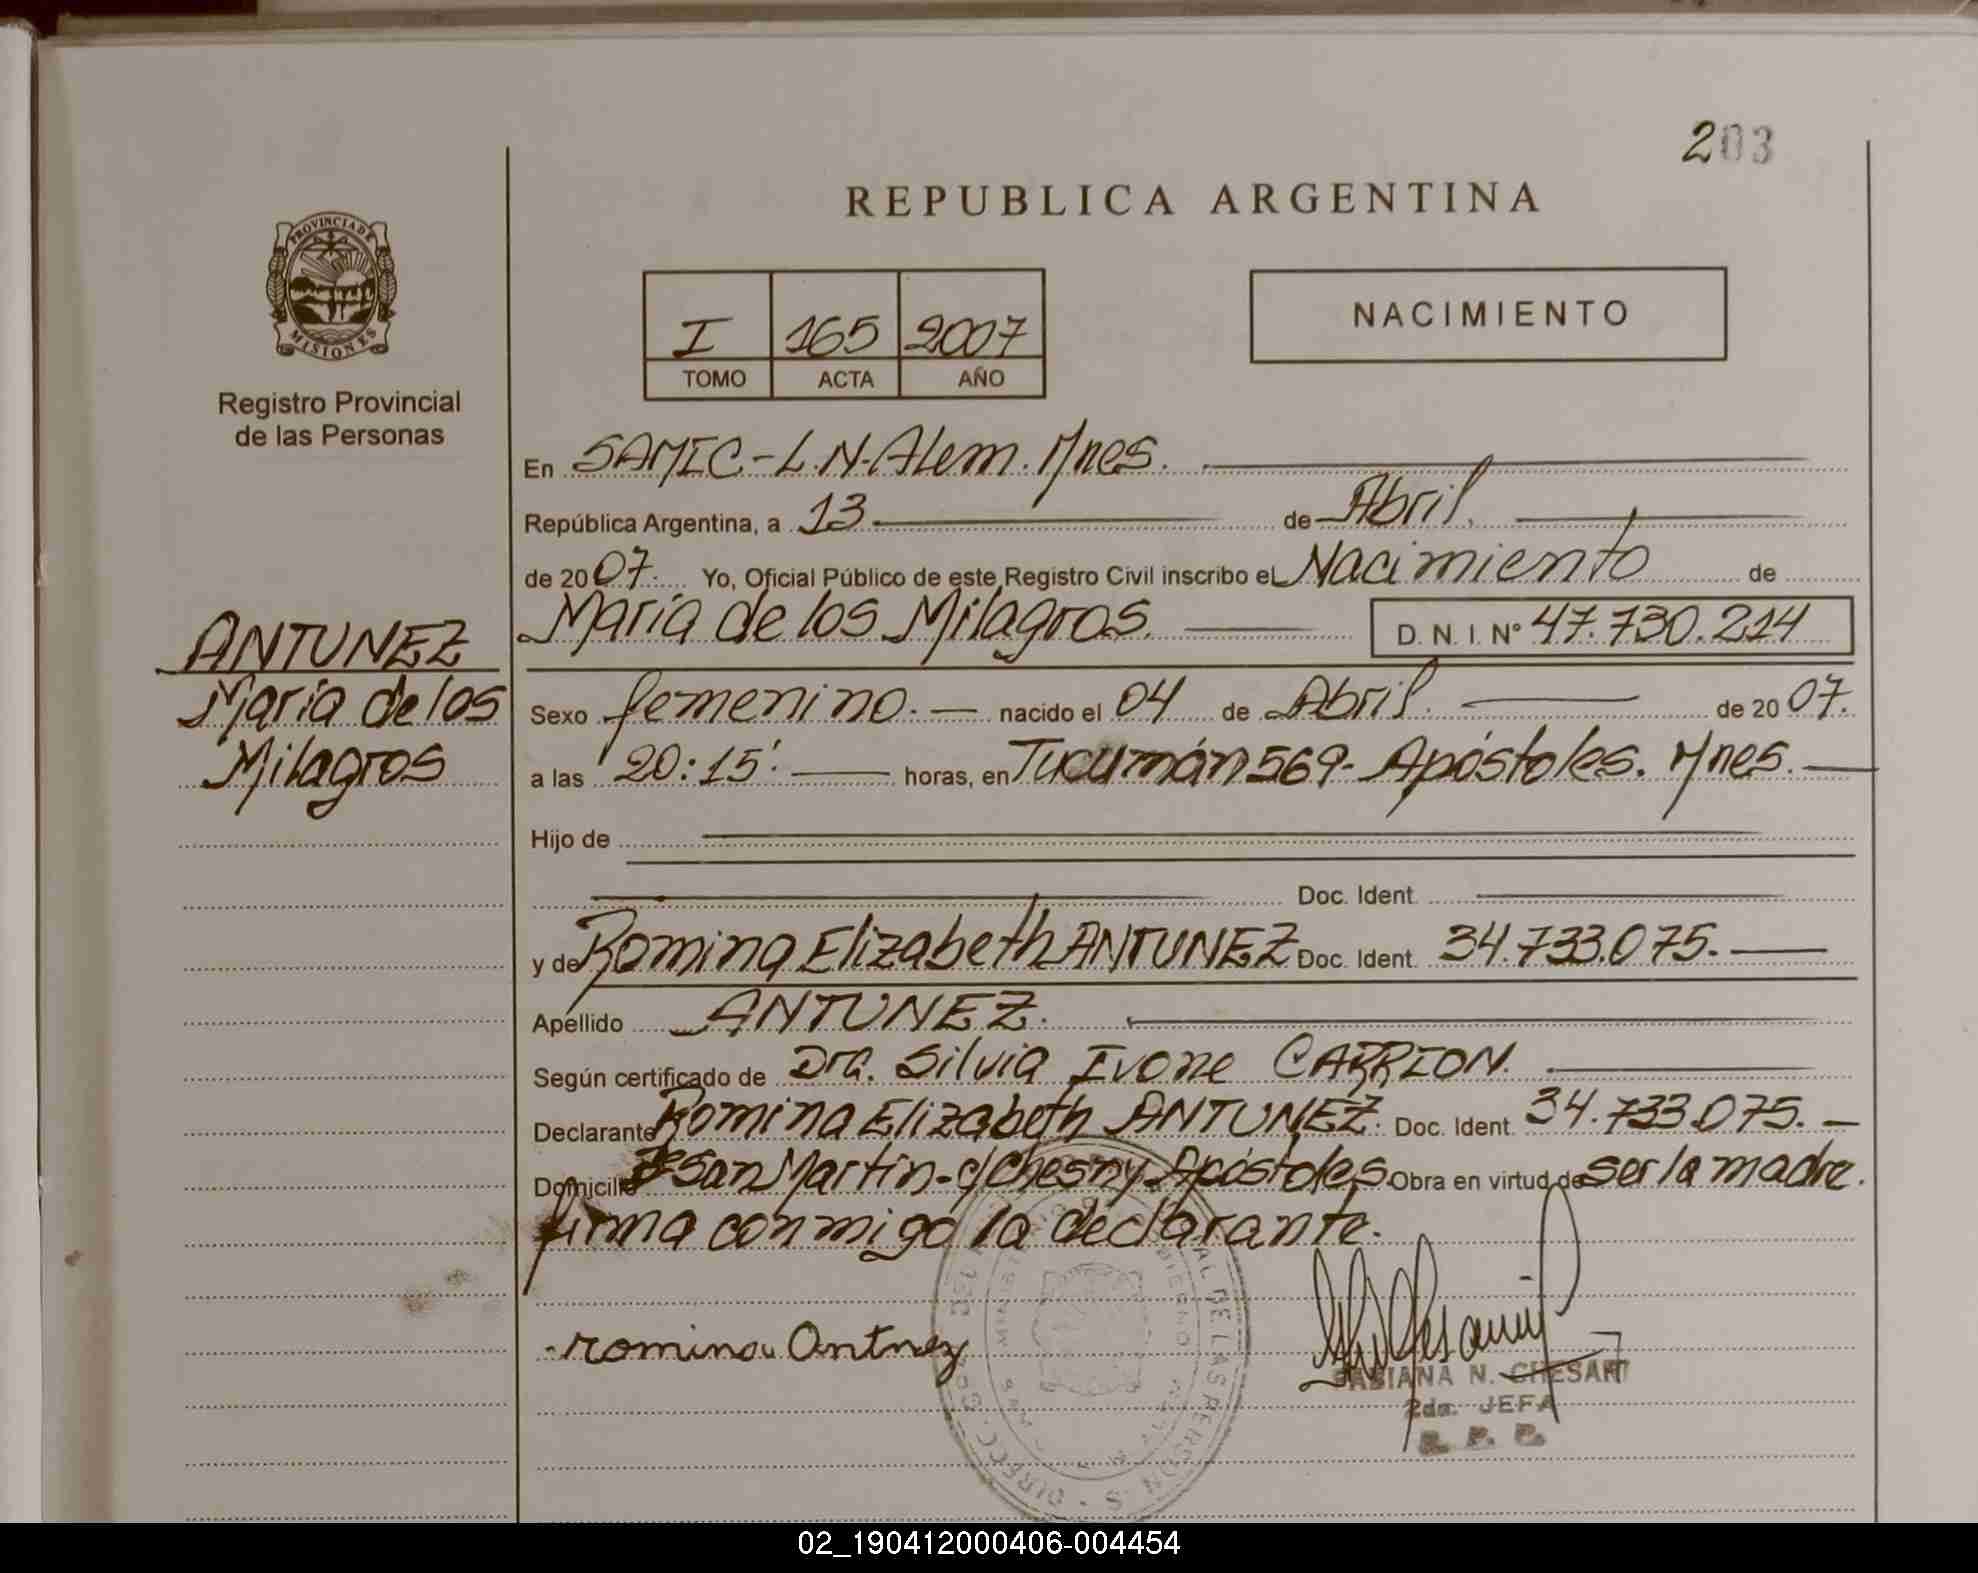 203
REPUBLICA ARGENTINA
PROVINCIA DE
MISIONES
Registro Provincial
de las Personas
I 165 2007
TOMO ACTA AÑO
NACIMIENTO
En SAMIC-L.N.Alem.Mnes.
República Argentina, a 13 de Abril.
de 2007. Yo, Oficial Público de este Registro Civil inscribo el Nacimiento de
María de los Milagros. D. N. I. Nº 47.730.214
ANTUNEZ
María de los
Milagros
Sexo femenino.- nacido el 04 de Abril. de 2007.
a las 20:15'. horas, en Tucumán 569- Apóstoles. Mnes.
Hijo de
Doc. Ident.
y de Romina Elizabeth ANTUNEZ Doc. Ident. 34.733.075.-
Apellido ANTUNEZ.
Según certificado de Dra. Silvia Ivone CARRION.
Declarante Romina Elizabeth ANTUNEZ. Doc. Ident. 34.733.075.-
Domicilio San Martín-c/Chesny Apóstoles. Obra en virtud de ser la madre.
firma conmigo la declarante.
romina Antnez
FABIANA N. CHESANI
2da. JEFA
R. P. P.
02_190412000406-004454